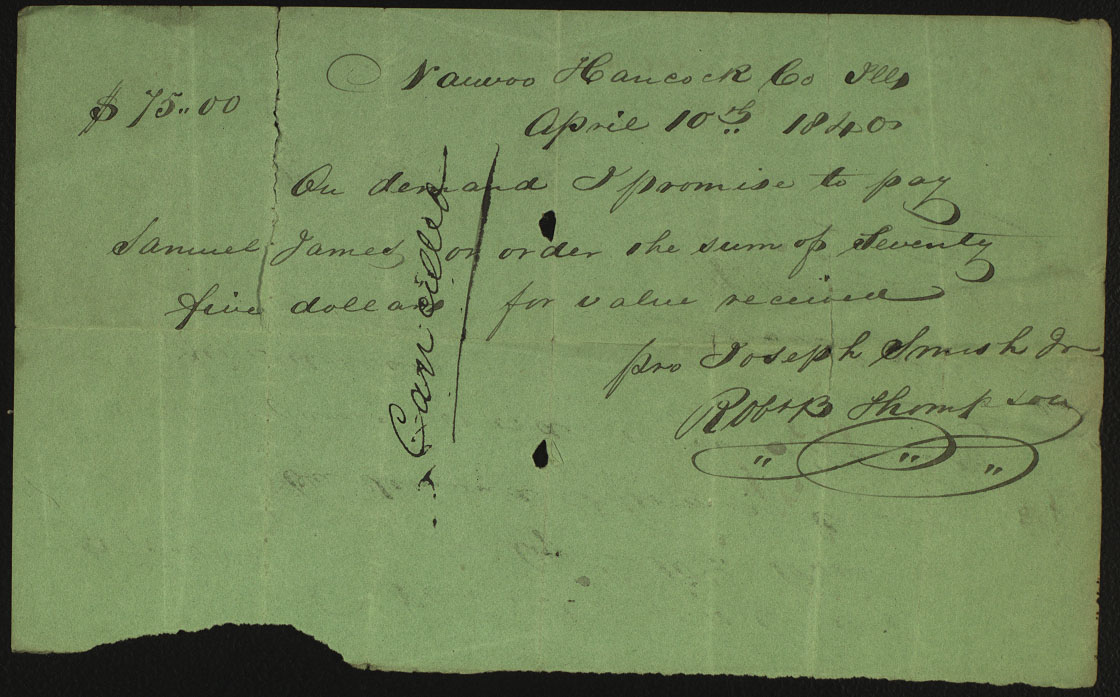 Nauvoo Hancock Co Ills
$ 75"00
April 10th 1840
On demand I promise to pay
Samuel James or order the sum of Seventy
five dollars for value received
pro Joseph Smish Jr
Robt B Thompson
Cancilled